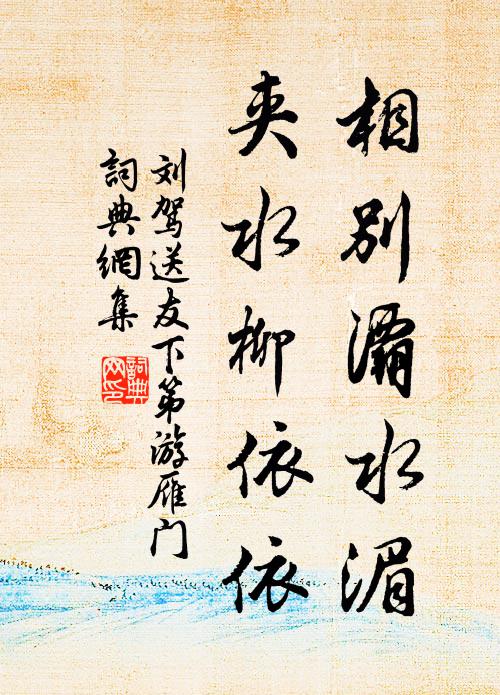 相别灞水湄
夹水柳依依
刘驾送友下第游雁门
詞典網集
詞典
网印